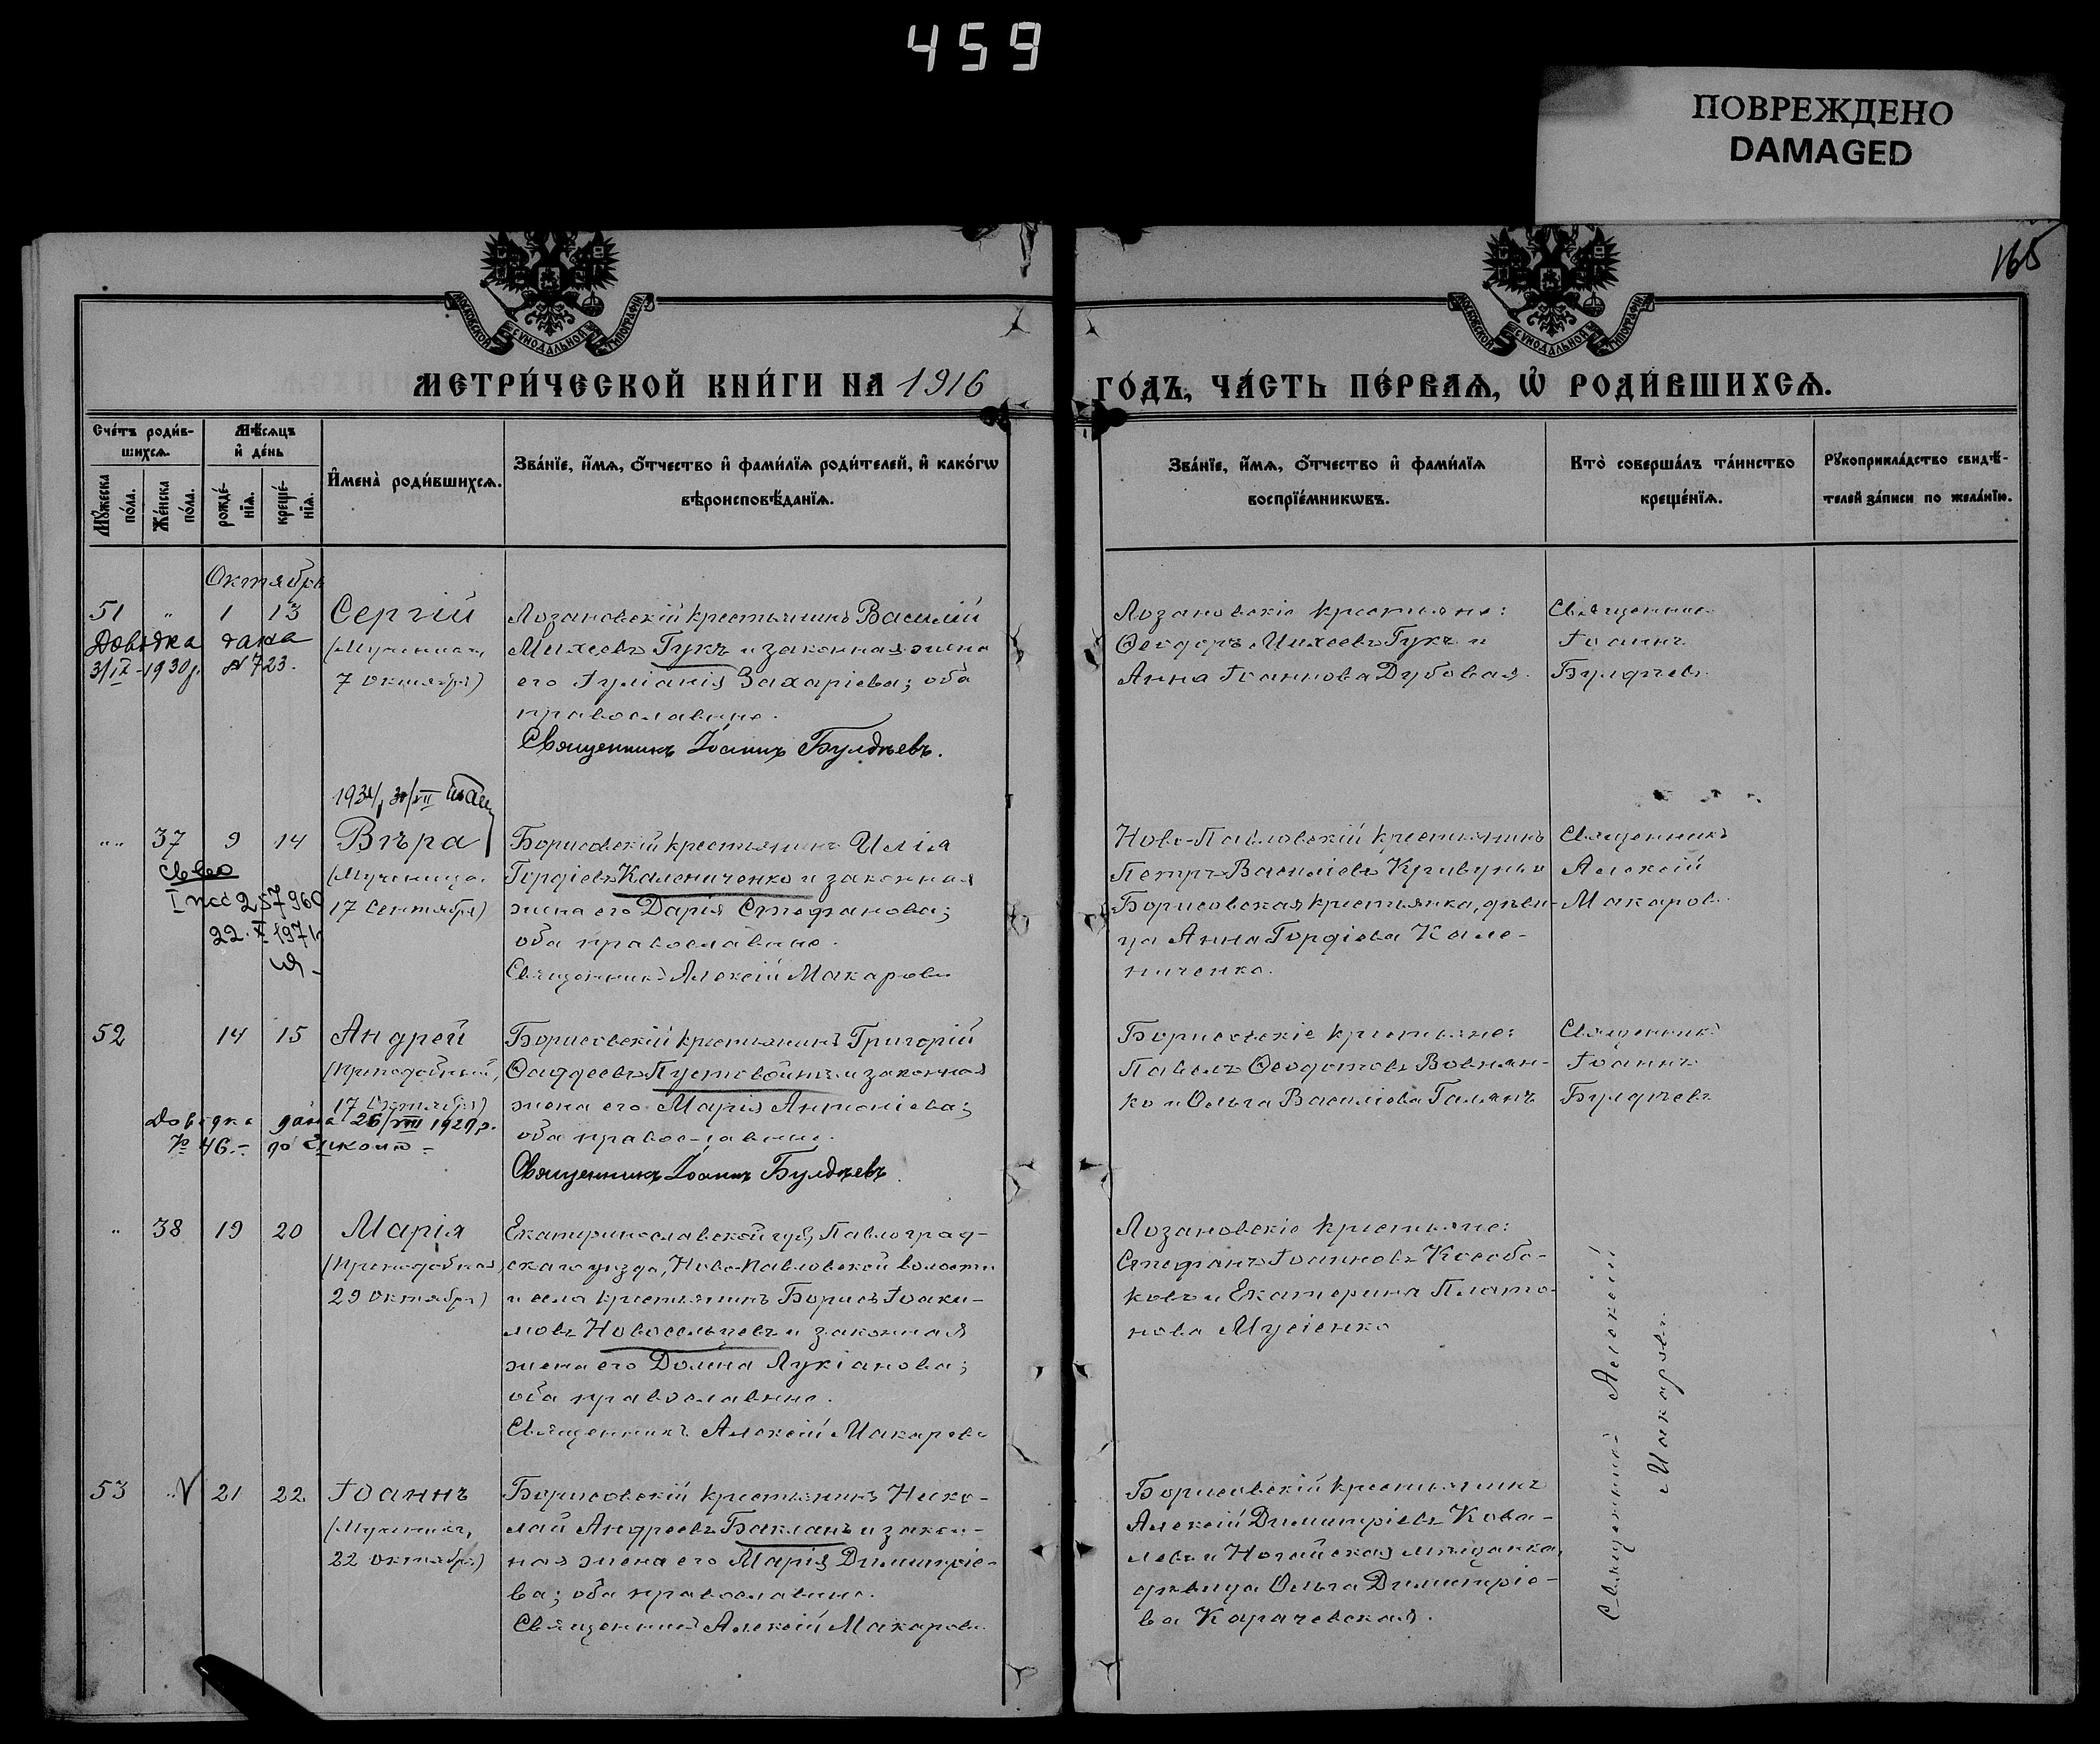 459
ПОВРЕЖДЕНО
DAMAGED
165
МОСКОВСКОЙ СѴНОДАЛЬНОЙ ТИПОГРАФІИ
МОСКОВСКОЙ СѴНОДАЛЬНОЙ ТИПОГРАФІИ
МЕТРИ́ЧЕСКОЙ КНИ́ГИ НА 1916
ГО́ДЪ, ЧА́СТЬ ПЕ́РВАѦ, Ѡ҆ РОДИ́ВШИХСѦ.
Сче́тъ роди́в-
шихсѧ.
Мѣ́сѧцъ
и҆ де́нь
Мꙋ́жеска
по́ла.
Же́нска
по́ла.
рожде́-
нїѧ.
креще́-
нїѧ.
И҆мена̀ роди́вшихсѧ.
Зва́нїе, и҆́мѧ, ѻ҆́тчество и҆ фами́лїѧ роди́телей, и҆ како́гѡ
вѣроисповѣ́данїѧ.
Зва́нїе, и҆́мѧ, ѻ҆́тчество и҆ фами́лїѧ
воспрїе́мникѡвъ.
Кто̀ соверша́лъ та́инство
креще́нїѧ.
Рꙋкоприкла́дство свидѣ́-
телей за́писи по жела́нїю.
Октябрь
51 " 1 13 Сергій
Довідка дана
3/IX-1930 р. № 723.
(Мученикъ,
7 Октября)
Лозановскій крестьянинъ Василій
Михеевъ Гукъ и законная жена
его Іуліанія Захаріева; оба
православные.
Священникъ Іоаннъ Булдѣевъ.
Лозановскіе крестьяне:
Ѳеодоръ Михеевъ Гукъ и
Анна Іоаннова Дубовая.
Священникъ
Іоаннъ
Булдѣевъ.
" 37 9 14 Вѣра
257960
22.X 1971
(Мученица,
17 Сентября)
Борисовскій крестьянинъ Илія
Гордіевъ Калениченко и законная
жена его Дарія Стефанова;
оба православные.
Священникъ Алексій Макаровъ
Ново-Павловскій крестьянинъ
Петръ Василіевъ Кривунь и
Борисовская крестьянка, дѣви-
ца Анна Гордіева Кале-
ниченко.
Священникъ
Алексій
Макаровъ.
52 14 15 Андрей
(Преподобный,
17 Октября)
Довідка дана 26/VIII 192 р.
№ 46.-
Борисовскій крестьянинъ Григорій
Ѳаддеевъ Пустовойтъ и законная
жена его Марія Антоніева;
оба православные.
Священникъ Іоаннъ Булдѣевъ.
Борисовскіе крестьяне:
Павелъ Ѳеодотовъ Вовнян-
ко и Ольга Василіева Галянъ
Священникъ
Іоаннъ
Булдѣевъ
" 38 19 20 Марія
(Преподобная,
29 Октября)
Екатеринославской губ., Павлоград-
скаго уѣзда, Ново-Павловской волости
и села крестьянинъ Борисъ Іоаки-
мовъ Новосельцевъ и законная
жена его Домна Лукіанова;
оба православные.
Священникъ Алексій Макаровъ
Лозановскіе крестьяне:
Стефанъ Іоанновъ Кособо-
ковъ и Екатерина Плато-
нова Мусіенко
Священникъ Алексій
Макаровъ.
53 " 21 22 Іоаннъ
(Мученикъ,
22 Октября)
Борисовскій крестьянинъ Нико-
лай Андреевъ Бакланъ и закон-
ная жена его Марія Димитріе-
ва; оба православные.
Священникъ Алексій Макаровъ.
Борисовскій крестьянинъ
Алексій Димитріевъ Кова-
левъ и Ногайская мѣщанка,
дѣвица Ольга Димитріе-
ва Карачевская.